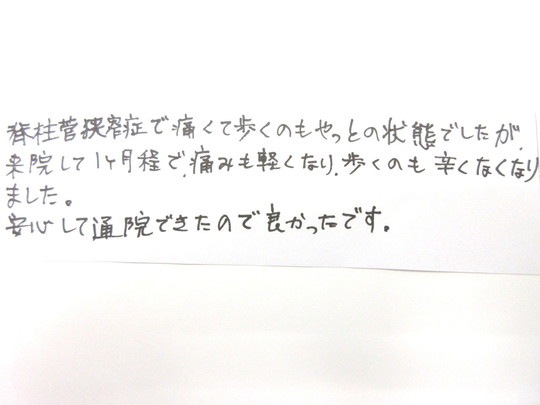 脊柱菅狭窄症で痛くて歩くのもやっとの状態でしたが、
来院して1ヶ月程で、痛みも軽くなり、歩くのも辛くなくなり
ました。
安心して通院できたので良かったです。